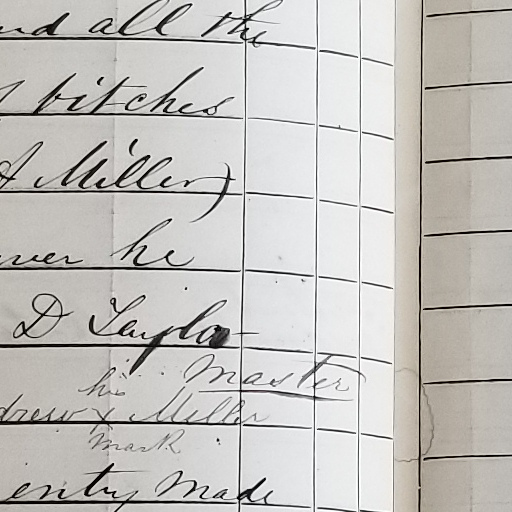 nd all the
f bitches
A Miller)
ver he
D Taylor
master
his
drew X Miller
mark
entry made